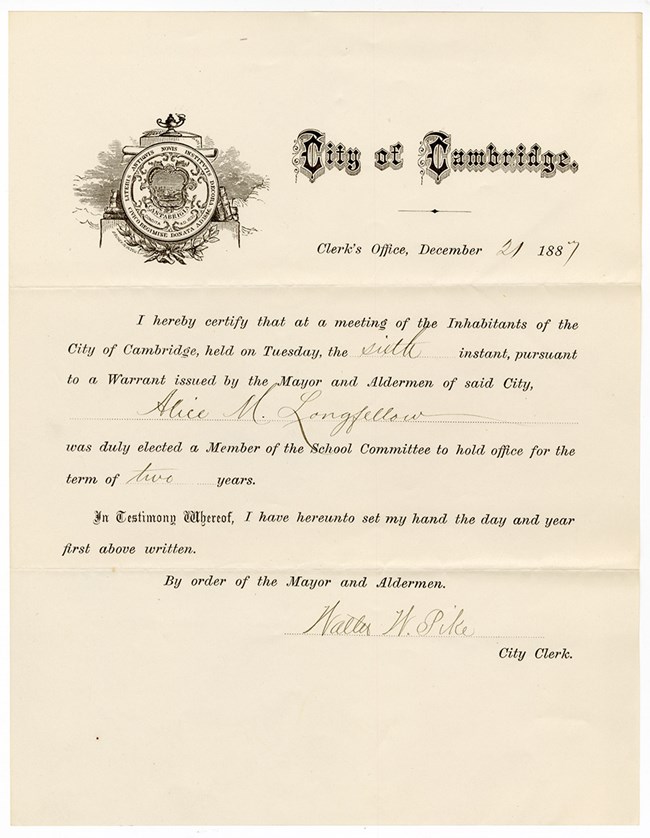 City of Cambridge.
LITERIS ANTIQUIS NOVIS INSTITUTIS DECORA
CANTABRIGIA
CONDITA A.D. 1630
CIVICO REGIMINE DONATA A.D. 1846
Clerk's Office, December 21 1887
I hereby certify that at a meeting of the Inhabitants of the
City of Cambridge, held on Tuesday, the sixth instant, pursuant
to a Warrant issued by the Mayor and Aldermen of said City,
Alice M. Longfellow
was duly elected a Member of the School Committee to hold office for the
term of two years.
In Testimony Whereof, I have hereunto set my hand the day and year
first above written.
By order of the Mayor and Aldermen.
Walter W. Pike
City Clerk.